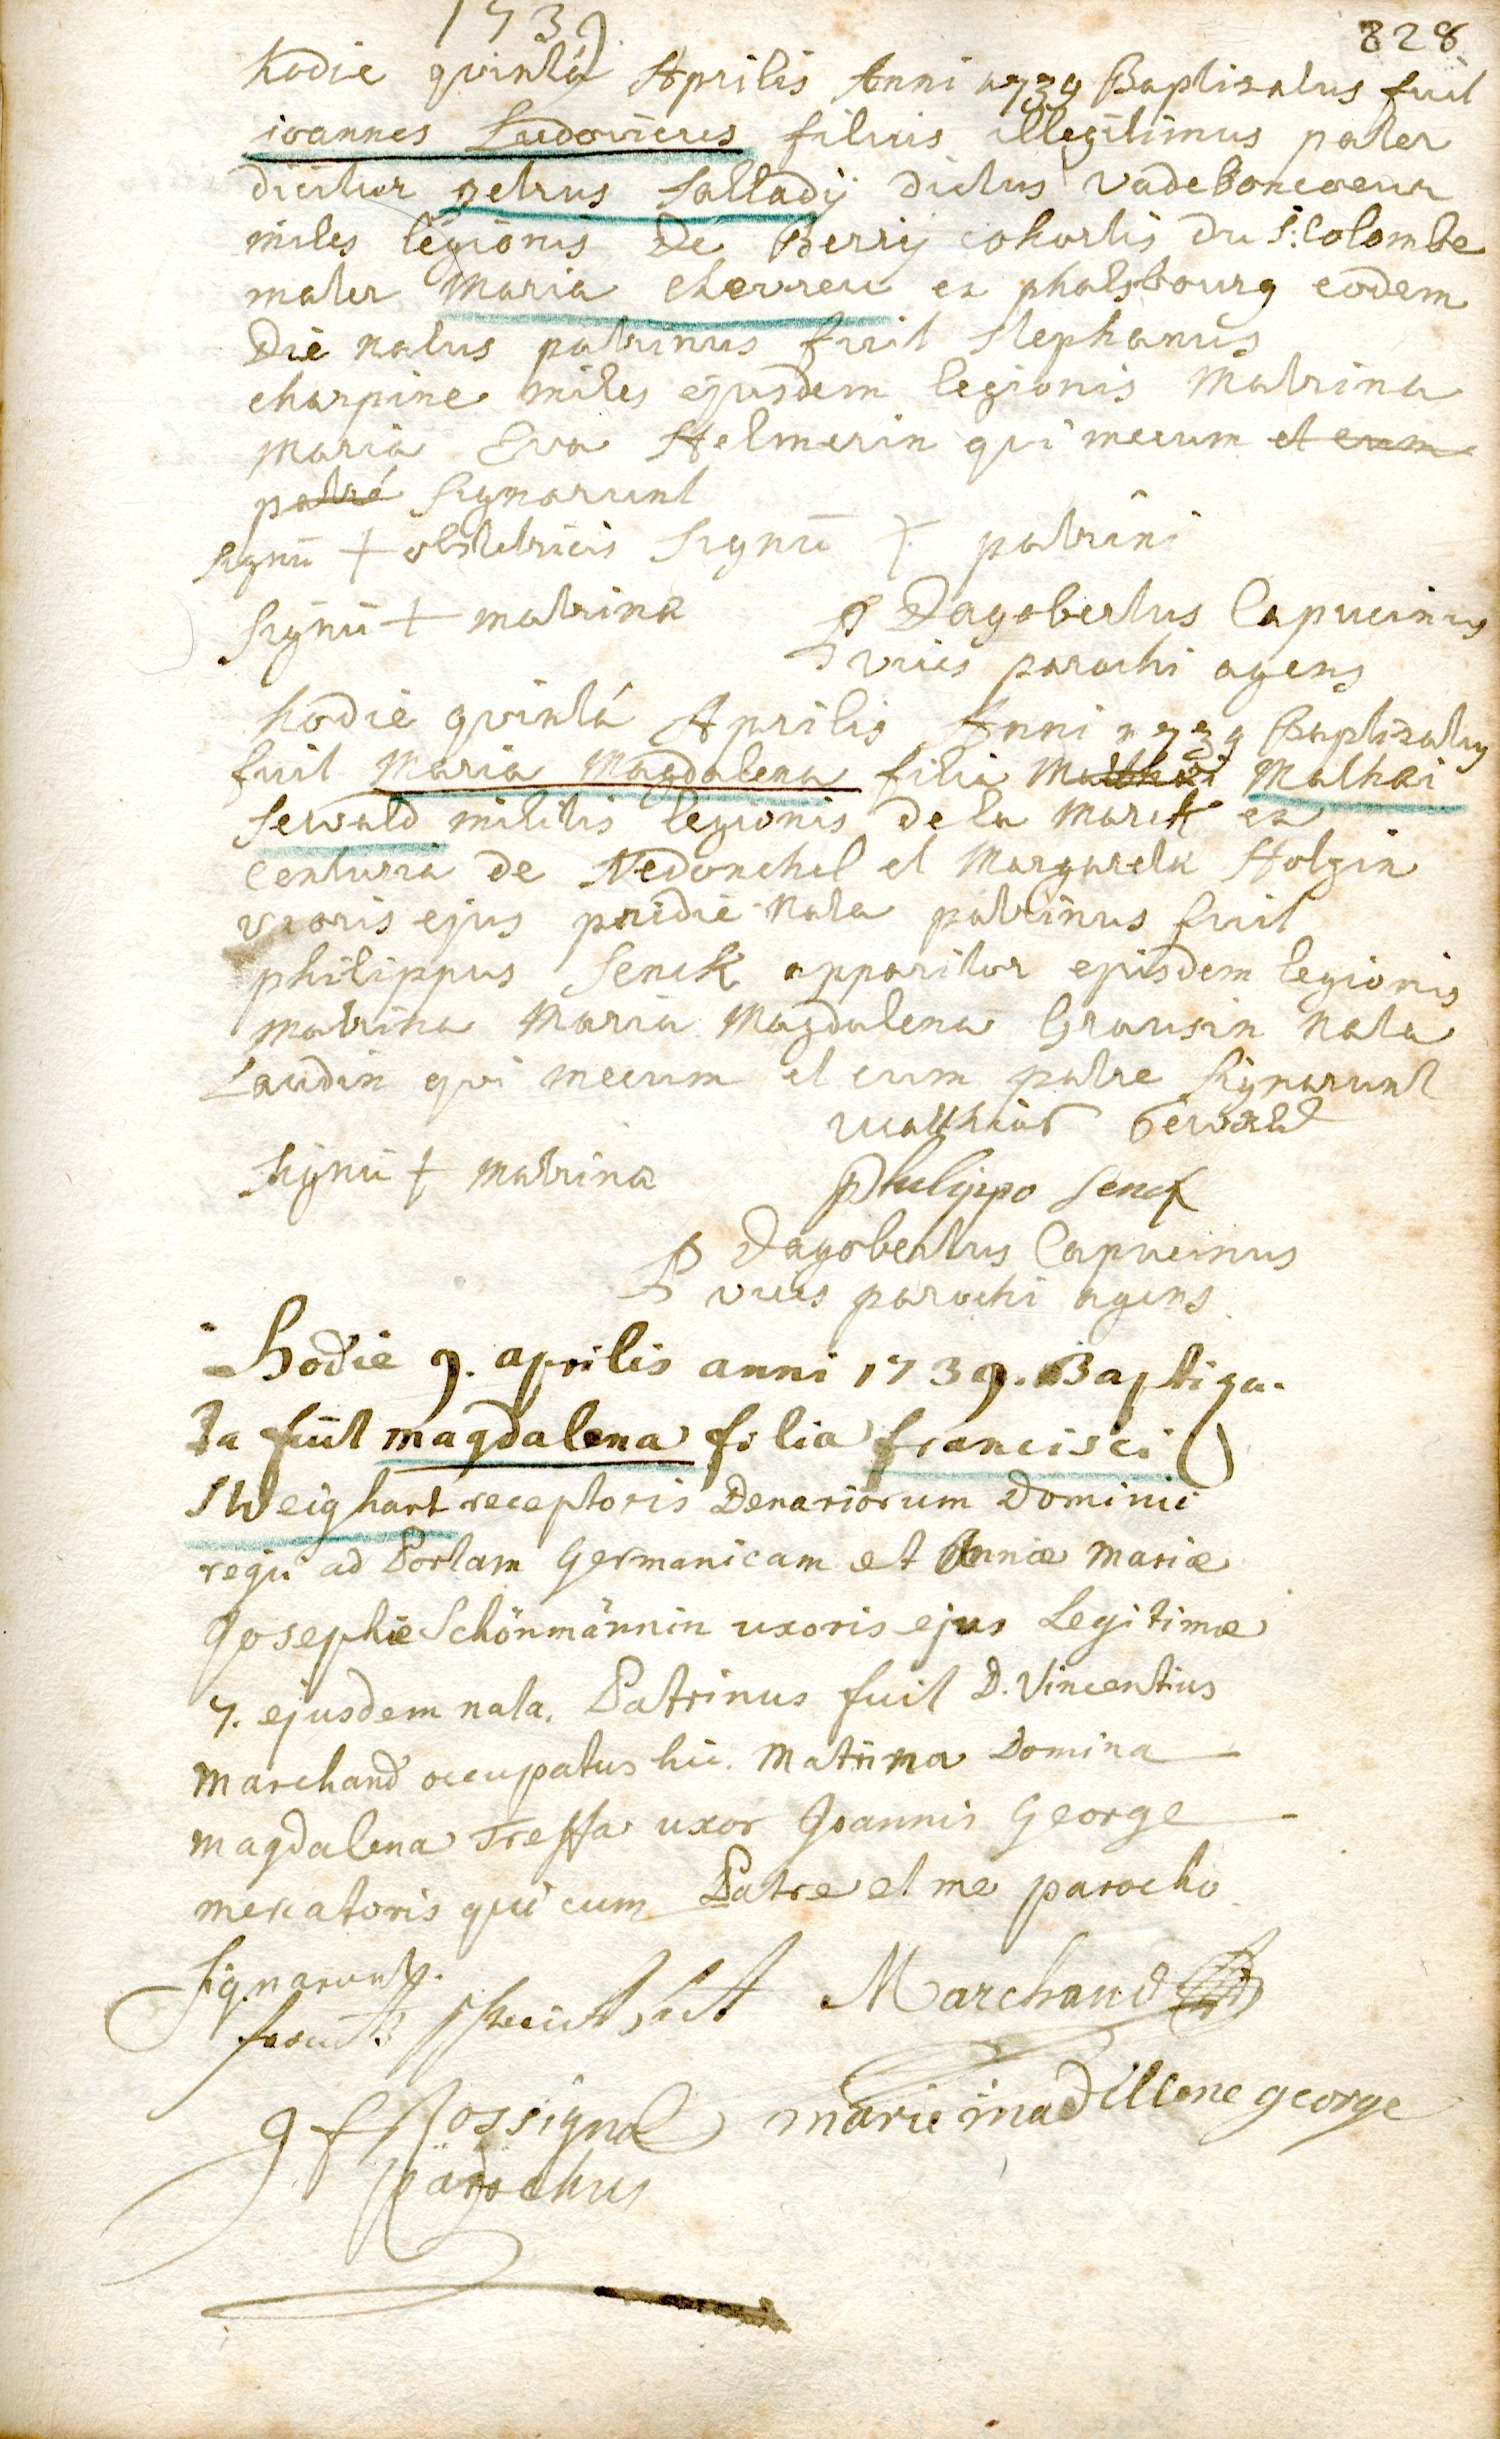 1739.
328
hodie quintá Aprilis Anni 1739 Baptisatus fuit
ioannes Ludovicus filius illegitimus pater
dicitur petrus Sallady dictus vadeboncoeur
miles legionis De Berry cohortis du S: Colombe
mater Maria chevreu ex phalsbourg eodem
Die natus patrinus fuit stephanus
charpine miles ejusdem legionis Matrina
Maria Eva Helmerin qui mecum et cum
patre signarunt
Signū + obstetricis Signū + patrini
Signū + matrina P Dagobertus Capucinus
vices parochi agens
hodie quintá Aprilis Anni 1739 Baptisatus
fuit Maria Magdalena filia Mathai Mathai
sewald militis legionis de la Marck ex
centuria de Nedonchel et Margareta Holzin
uxoris ejus pridie Nata patrinus fuit
philippus Senck apparitor ejusdem legionis
Matrina Maria Magdalena Grausin Nata
Laudin qui mecum et cum patre signarunt
Matthias Sewald
Signū + matrina Philippo Senck
P Dagobertus Capucinus
vices parochi agens
hodie 9. aprilis anni 1739. Baptiza-
ta fuit magdalena filia francisci
Sweighart receptoris Denariorum Dominii
regii ad Portam Germanicam et Annæ Mariæ
Josephæ Schönmännin uxoris ejus Legitimæ
7. ejusdem nata. Patrinus fuit D. Vincentius
Marchand occupatus hic. Matrina Domina
Magdalena Treffa uxor Joannis George
mercatoris qui cum Patre et me parocho
signarunt.
Marchand
J f Rossignol marie madillene george
parochus